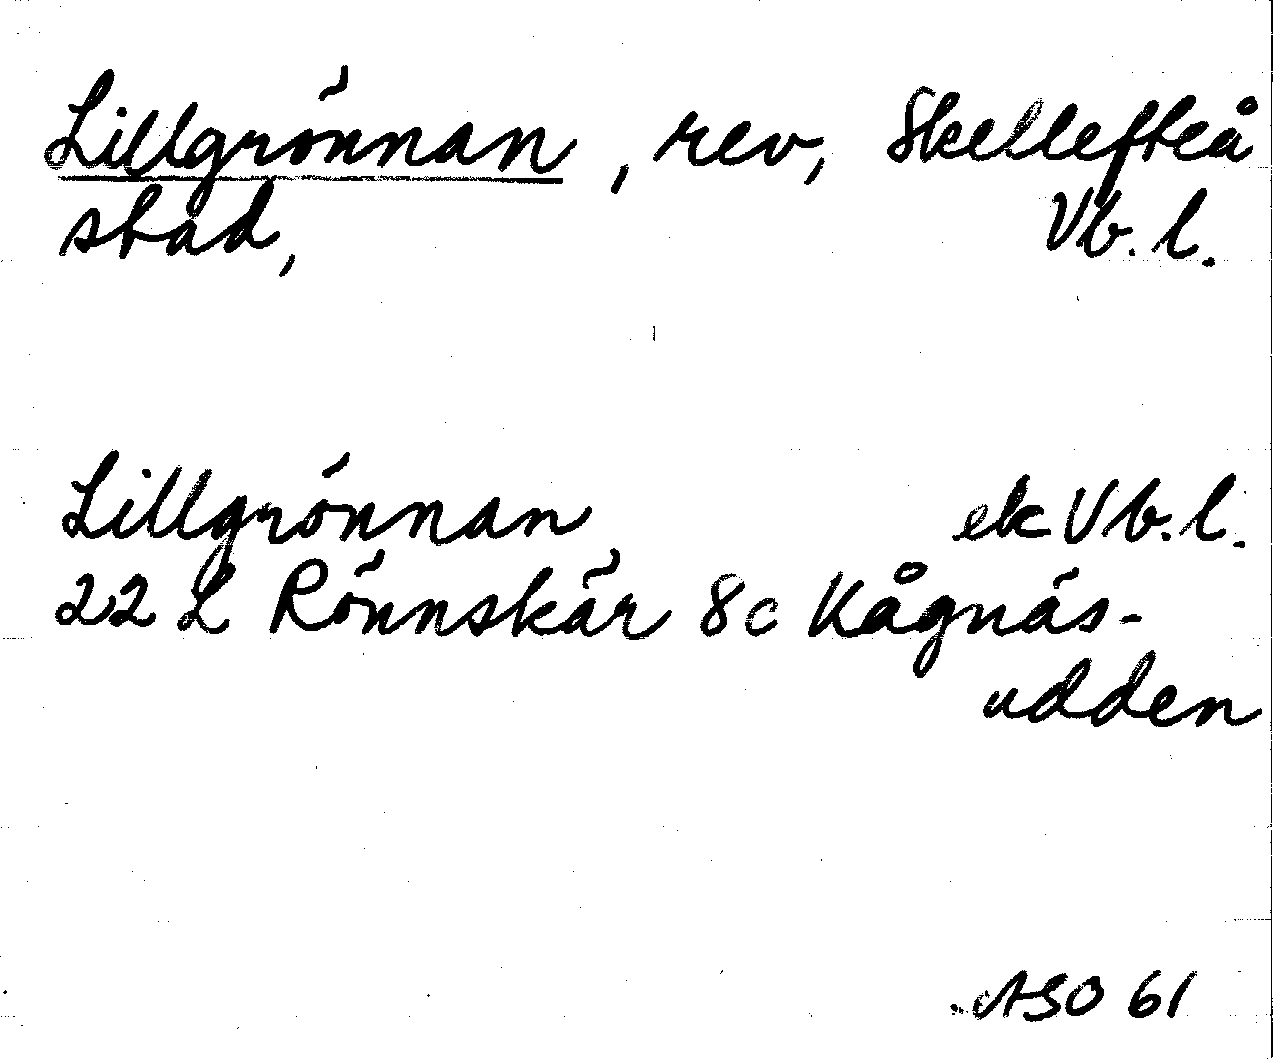 Lillgrönnan, rev, Skellefteå
stad, Vb. l.
Lillgrönnan ek Vb. l.
22 L Rönnskär 8c Kågnäs-
udden
ASO 61